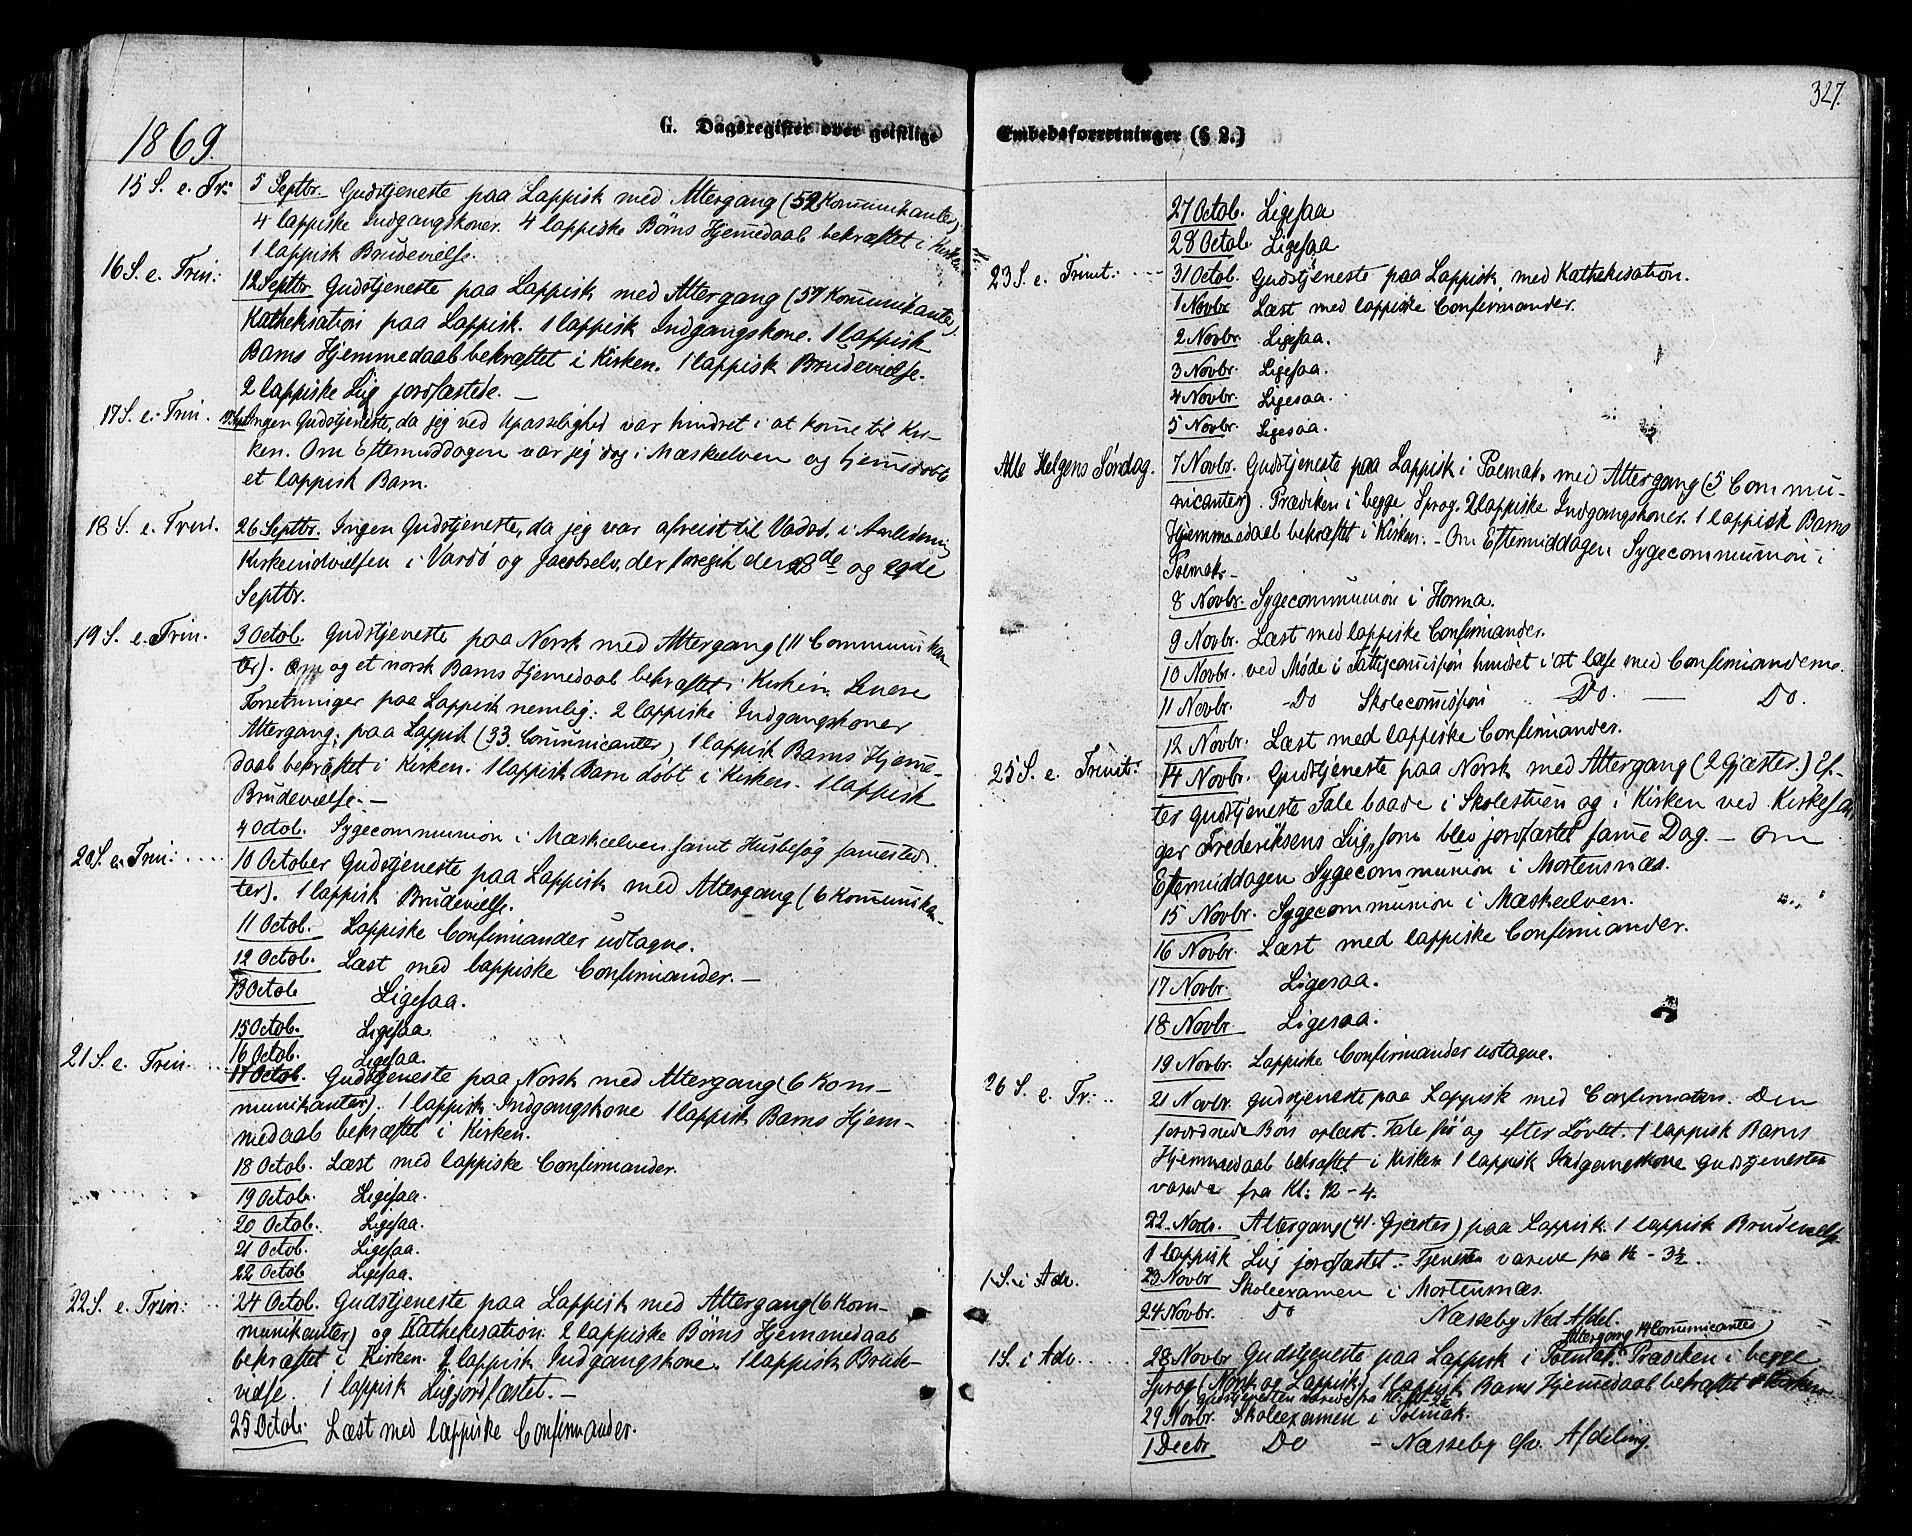 1869.
G. Dagsregister over geistlige
15 S. e. Tr: 5 Septbr. Gudstjeneste paa Lappisk med Altergang (52 Kommunikanter)
4 lappiske Indgangskoner. 4 lappiske Børns Hjemedaab bekræftet i Kirken.
1 lappisk Brudevielse.
16 S. e. Trin: 12 Septbr Gudstjeneste paa Lappisk med Altergang (57 Kommunikanter).
Kathekisation paa Lappisk. 1 lappisk Indgangskone. 1 lappisk
Barns Hjemmedaab bekræftet i Kirken. 1 lappisk Brudevielse.
2 lappiske Liig jordfæstede. —
17 S. e. Trin. 19 Sept Ingen Gudstjeneste, da jeg ved Upasselighed var hindret i at komme til Kir-
ken. Om Eftermiddagen var jeg dog i Mæskelven og hjemedøbte
et lappisk Barn.
18 S. e. Trin. 26 Septbr. Ingen Gudstjeneste, da jeg var afreist til Vadsø i Anledning
Kirkeindvielsen i Vardø og Jacobselv, der foregik den 28de og 29de
Septbr.
19 S. e. Trin. 3 Octob. Gudstjeneste paa Norsk med Altergang (11 Communikan-
ter). og et norsk Barns Hjemedaab bekræftet i Kirken. Senere
Forretninger paa Lappisk nemlig: 2 lappiske Indgangskoner
Altergang paa Lappisk (33 Comunicanter) 1 lappisk Barns Hjeme-
daab bekræftet i Kirken. 1 lappisk Barn døbt i Kirken. 1 lappisk
Brudevielse. —
4 Octob. Sygecommunion i Mæskeelven samt Husbesøg samested.
20 S. e. Trin: .... 10 October Gudstjeneste paa Lappisk med Altergang (6 Kommunikan-
ter). 1 lappisk Brudevielse.
11 Octob. Lappiske Confirmander udtagne.
12 Octob. Læst med lappiske Confirmander. —
13 Octob Ligesaa.
15 Octob. Ligesaa.
16 Octob. Ligesaa.
21 S. e. Trin. 17 Octob. Gudstjeneste paa Norsk med Altergang (6 Kom-
munikanter). 1 lappisk Indgangskone 1 lappisk Barns Hjem-
medaab bekræftet i Kirken.
18 Octob. Læst med lappiske Confirmander.
19 Octob. Ligesaa.
20 Octob. Ligesaa.
21 Octob. Ligesaa.
22 Octob Ligesaa.
22 S. e. Trin: 24 Octob. Gudstjeneste paa Lappisk med Altergang (6 Kom-
munikanter) og Kathekisation. 2 lappiske Børns Hjemmedaab
bekræftet i Kirken. 2 lappisk Indgangskone. 1 lappisk Brude-
vielse. 1 lappisk Lig jordfæstet. —
25 Octob. Læst med lappiske Confirmander.
327.
Embedsforretninger (§ 2.)
27 Octob. Ligesaa
28 Octob. Ligesaa
23 S. e. Trinit: .... 31 Octob. Gudstjeneste paa Lappisk, med Kathekisation.
1 Novbr Læst med lappiske Confirmander.
2 Novbr. Ligesaa.
3 Novbr. Ligesaa.
4 Novbr. Ligesaa.
5 Novbr. Ligesaa.
Alle Helgens Søndag. 7 Novbr. Gudstjeneste paa Lappisk i Polmak. med Altergang (5 Commu-
nicanter). Prædiken i begge Sprog. 2 lappiske Indgangskoner. 1 lappisk Barns
Hjemmedaab bekræftet i Kirken. - Om Eftermiddagen Sygecommunion i
Polmak. —
8 Novbr. Sygecommunion i Horma.
9 Novbr. Læst med lappiske Confirmander.
10 Novbr. ved Møde i Fattigcomission hindret i at læse med Confirmanderne.
11 Novbr. - Do Skolecomission Do. — Do.
12 Novbr. Læst med lappiske Confirmander.
25 S. e. Trinit: 14 Novbr. Gudstjeneste paa Norsk med Altergang (2 Gjæster.) Ef-
ter Gudstjeneste Tale baade i Skolestuen og i Kirken ved Kirkesan-
ger Frederiksens Liig, som blev jordfæstet samme Dag. — Om
Eftermiddagen Sygecommunion i Mortensnæs.
15 Novbr. Sygecommunion i Mæskeelven.
16 Novbr. Læst med lappiske Confirmander.
17 Novbr. Ligesaa.
18 Novbr. Ligesaa.
19 Novbr. Lappiske Confirmander udtagne.
26 S. e. Tr: .. 21 Novbr Gudstjeneste paa Lappisk med Confirmation. Den
forordnede Bøn oplæst. Tale før og efter Løvtet. 1 lappisk Barns
Hjemmedaab bekræftet i Kirken 1 lappisk Indgangskone Gudstjenesten
varede fra Kl: 12 - 4.
22 Novb. Altergang (41 Gjæster) paa Lappisk 1 lappisk Brudevielse
1 lappisk Liig jordfæstet. Tjenesten varede fra 12 - 3½.
1 S. i Adv. 23 Novbr Skoleexamen i Mortensnæs.
24 Novbr. Do Næsseby Ned. Afdel.
Altergang 14 Comunicantes)
1 S. i Adv. 28 Novbr Gudstjeneste paa Lappisk i Polmak. Prædiken i begge
Sprog (Norsk og Lappisk) 1 lappisk Barns Hjemedaab bekræftet i Kirken
Gudstjenesten varede fra Kl.
29 Novbr. Skoleexamen i Polmak.
1 Decbr Do - Næsseby øfr. Afdeling.